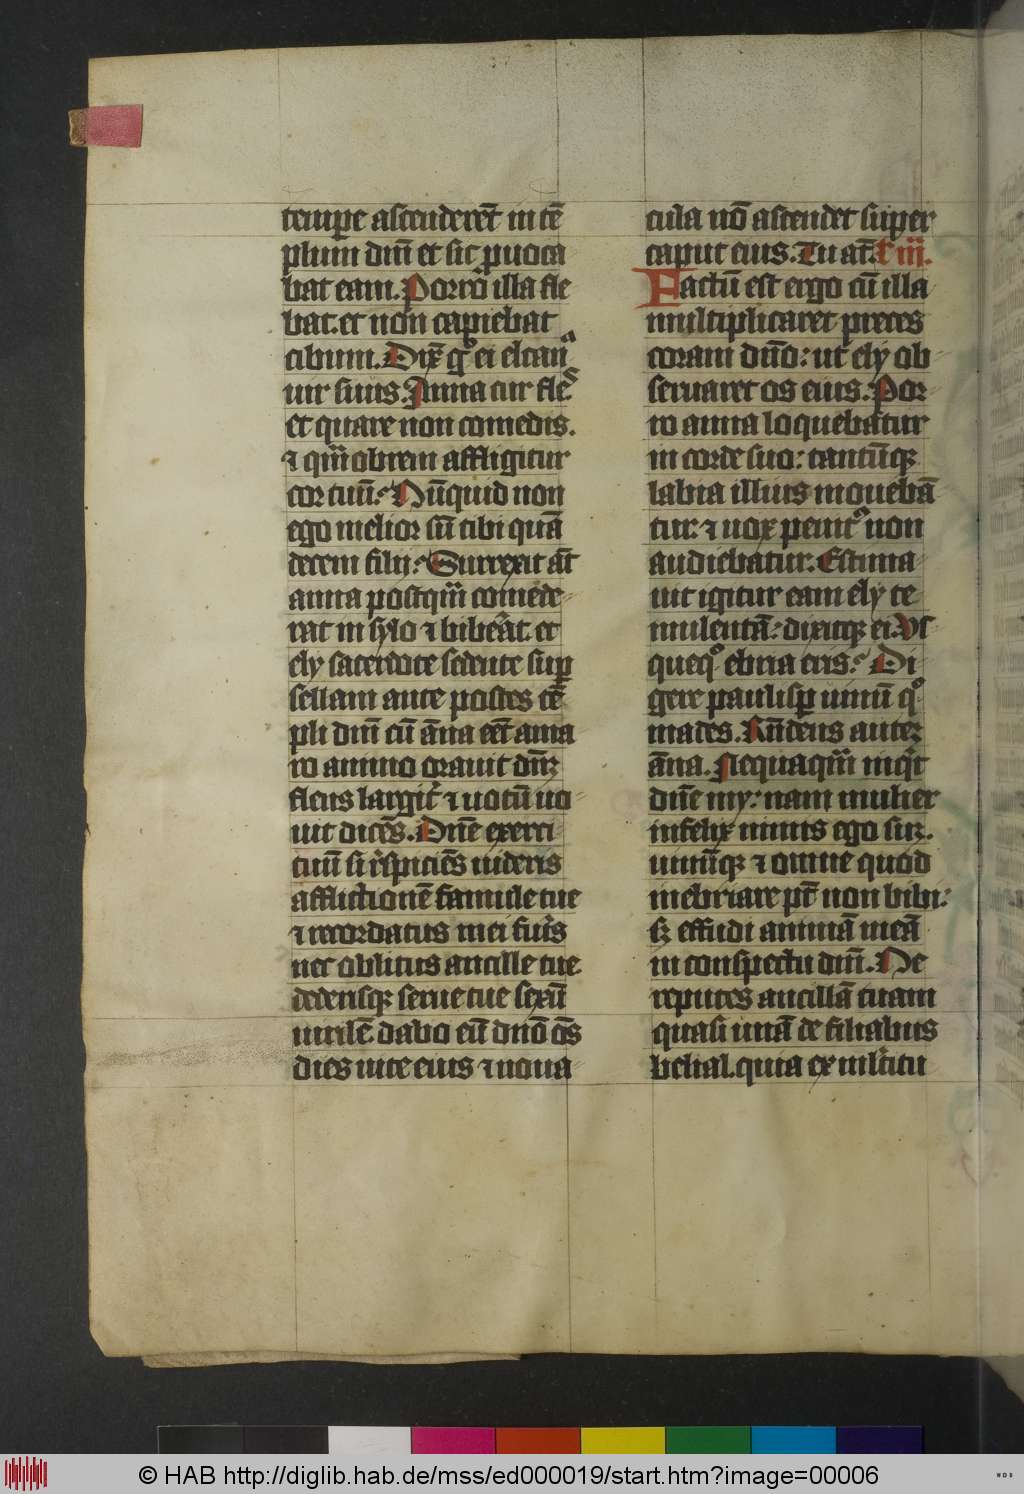 tempe ascenderet̄ in tē
plum dn̄i et sic ꝓuoca
bat eam. Porro illa fle
bat. et non capiebat
cibum. Dix̄ gͦ ei elcanᵃ
uir suus. Anna cur fles.
et quare non comedis.
⁊ qm̄ obrem affligitur
cor tuū. Nūquid non
ego melior sū tibi quā
decem filij. Surrexit aūt
anna postqm̄ comede
rat in sylo ⁊ biberat. et
ely sacerdote sedente suꝑ
sellam ante postes tē
pli dn̄i cū āna eēt ama
ro animo orauit dn̄ꝫ
flens largiṫ ⁊ uotū uo
uit dicēs. Dn̄e exerci
tuū si respiciēs uideris
afflictionē famule tue
⁊ recordatus mei fueris
nec oblitus ancille tue
dederisqꝫ serue tue sexū
uirilē. dabo eū dn̄o ōs
dies uite eius ⁊ noua
cula nō ascendet super
caput eius. Tu aūt. l. iij.
Factū est ergo cū illa
multiplicaret preces
coram dn̄o: ut ely ob
seruaret os eius. Por
ro anna loquebatur
in corde suo: tantūqꝫ
labia illius mouebā
tur. ⁊ uox penitͦ non
audiebatur. Estima
uit igitur eam ely te
mulentā: dixitqꝫ ei. Vs
quequͦ ebria eris. Di
gere paulisꝑ uinū qͦ
mades. Rn̄dens auteꝫ
āna. Nequaqm̄ inqͥt
dn̄e my: nam mulier
infelix nimis ego suꝫ.
uinūqꝫ ⁊ omne quod
inebriare pt̄ non bibi:
sꝫ effudi animā meā
in conspectu dn̄i. Ne
reputes ancillā tuam
quasi unā de filiabus
belial. quia ex multitu
© HAB http://diglib.hab.de/mss/ed000019/start.htm?image=00006